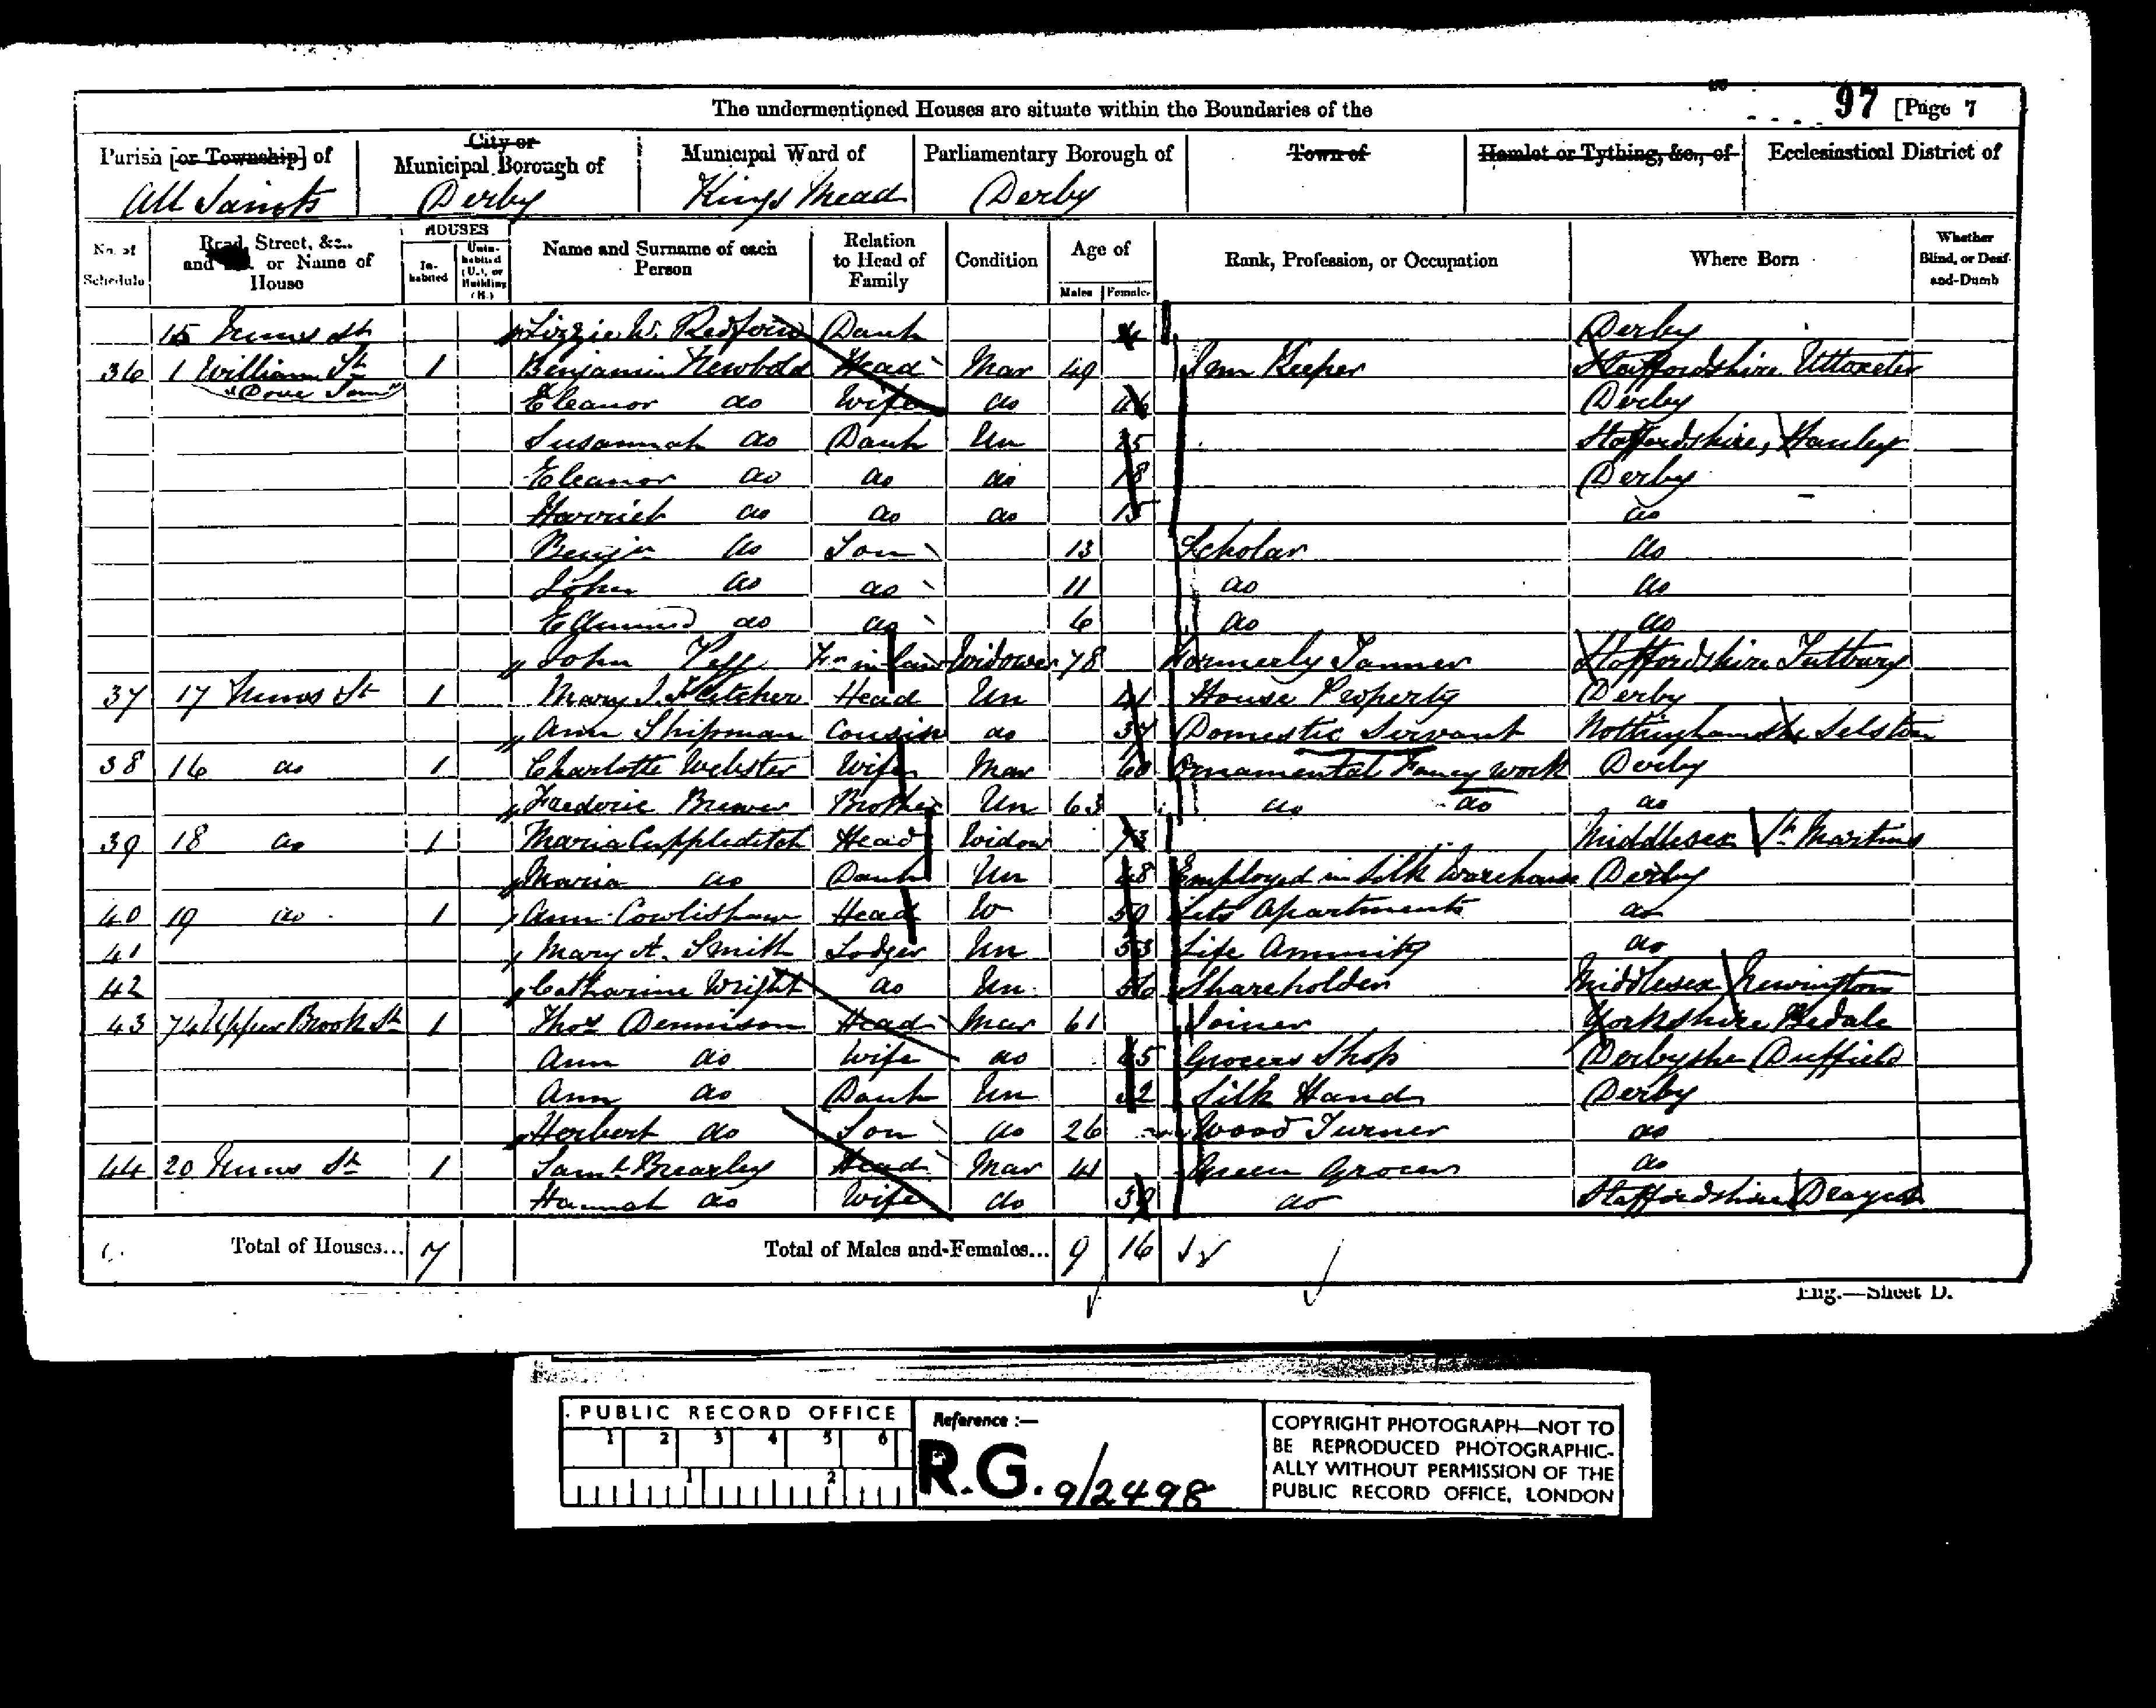 The undermentioned Houses are situate within the Boundaries of the 97 [Page 7
Parish [or Township] of City or Municipal Borough of Municipal Ward of Parliamentary Borough of Town of Hamlet or Tything, &c., of Ecclesiastical District of
All Saints Derby Kings Mead Derby
No. of Schedule Road, Street, &c., and or Name of House HOUSES Inhabited Uninhabited (U.), or Building (B.) Name and Surname of each Person Relation to Head of Family Condition Age of Males Females Rank, Profession, or Occupation Where Born Whether Blind, or Deaf-and-Dumb
15 Nuns St Lizzie W. Daur Derby
36 1 William St 1 Benjamin Newbold Head Mar 49 Inn Keeper Staffordshire Uttoxeter
"Dove Inn" Eleanor do Wife do 46 Derby
Susannah do Daur Un 25 Staffordshire, Hanley
Eleanor do do do 18 Derby
Harriet do do do 15 do
Benjn do Son 13 Scholar do
John do do 11 do do
Edmund do do 6 do do
John Fr in law Widower 78 Formerly Tanner Staffordshire Tutbury
37 17 Nuns St 1 Mary J. Fletcher Head Un 41 House Property Derby
Ann Shipman Cousin do 37 Domestic Servant Nottinghamshe Selston
38 16 do 1 Charlotte Webster Wife Mar 60 Ornamental Fancy Work Derby
Frederic Brewer Brother Un 63 do do do
39 18 do 1 Maria Cuppleditch Head Widow 73 Middlesex St Martins
Maria do Daur Un 48 Employed in Silk Warehouse Derby
40 19 do 1 Ann Cowlishaw Head W 59 Lets Apartments do
41 Mary A. Smith Lodger Un 53 Life Annuity do
42 Catharine Wright do Un 56 Shareholder Middlesex Newington
43 74 Upper Brook St 1 Thos Dennison Head Mar 61 Joiner Yorkshire Bedale
Ann do Wife do 65 Grocers Shop Derbyshe Duffield
Ann do Daur Un 32 Silk Hand Derby
Herbert do Son do 26 Wood Turner do
44 20 Nuns St 1 Saml Brearley Head Mar 41 Green Grocer do
Hannah do Wife do 39 do Staffordshire Draycot
Total of Houses... 7 Total of Males and Females... 9 16
Eng.—Sheet D.
PUBLIC RECORD OFFICE
1 2 3 4 5 6
1 2
Reference :—
R.G. 9/2498
COPYRIGHT PHOTOGRAPH—NOT TO
BE REPRODUCED PHOTOGRAPHIC-
ALLY WITHOUT PERMISSION OF THE
PUBLIC RECORD OFFICE, LONDON